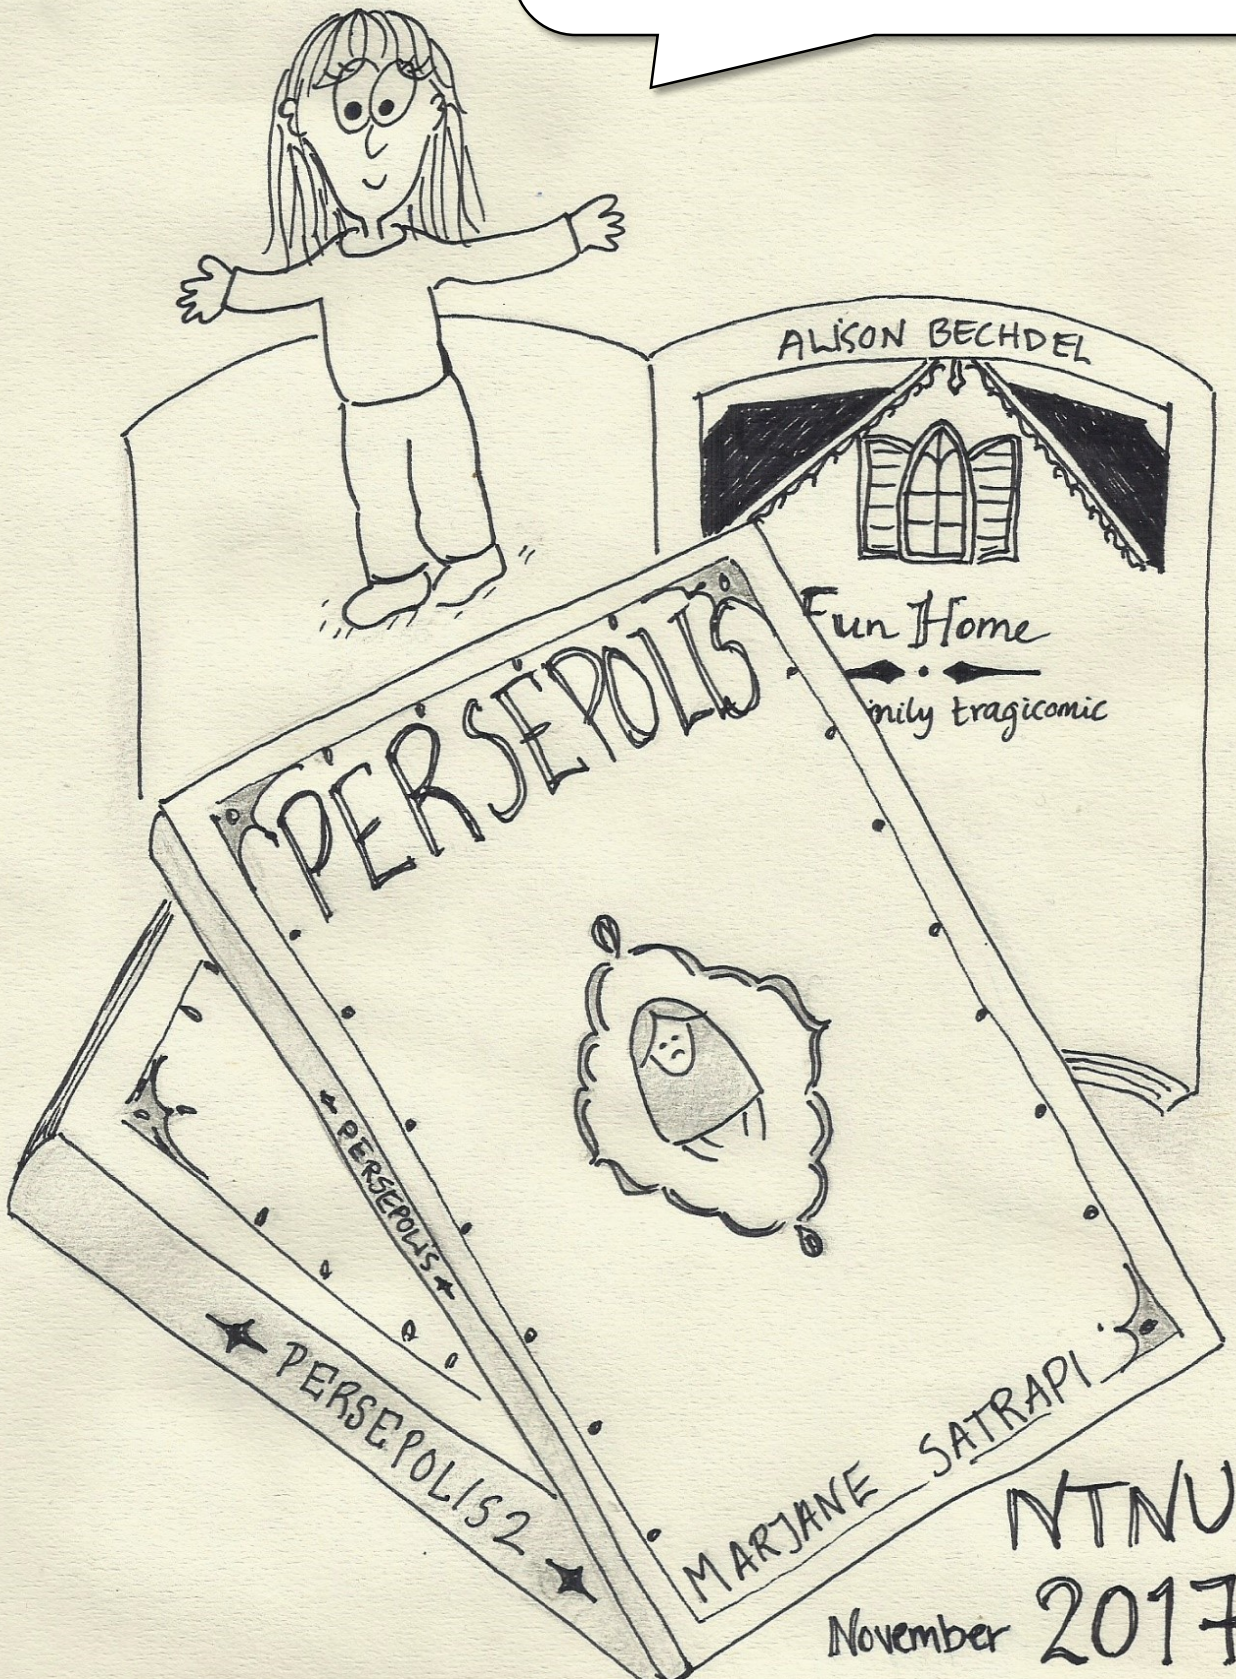 ALISON BECHDEL
Fun Home
mily tragicomic
PERSEPOLIS
PERSEPOLIS
PERSEPOLIS 2
MARJANE SATRAPI
NTNU
November 2017